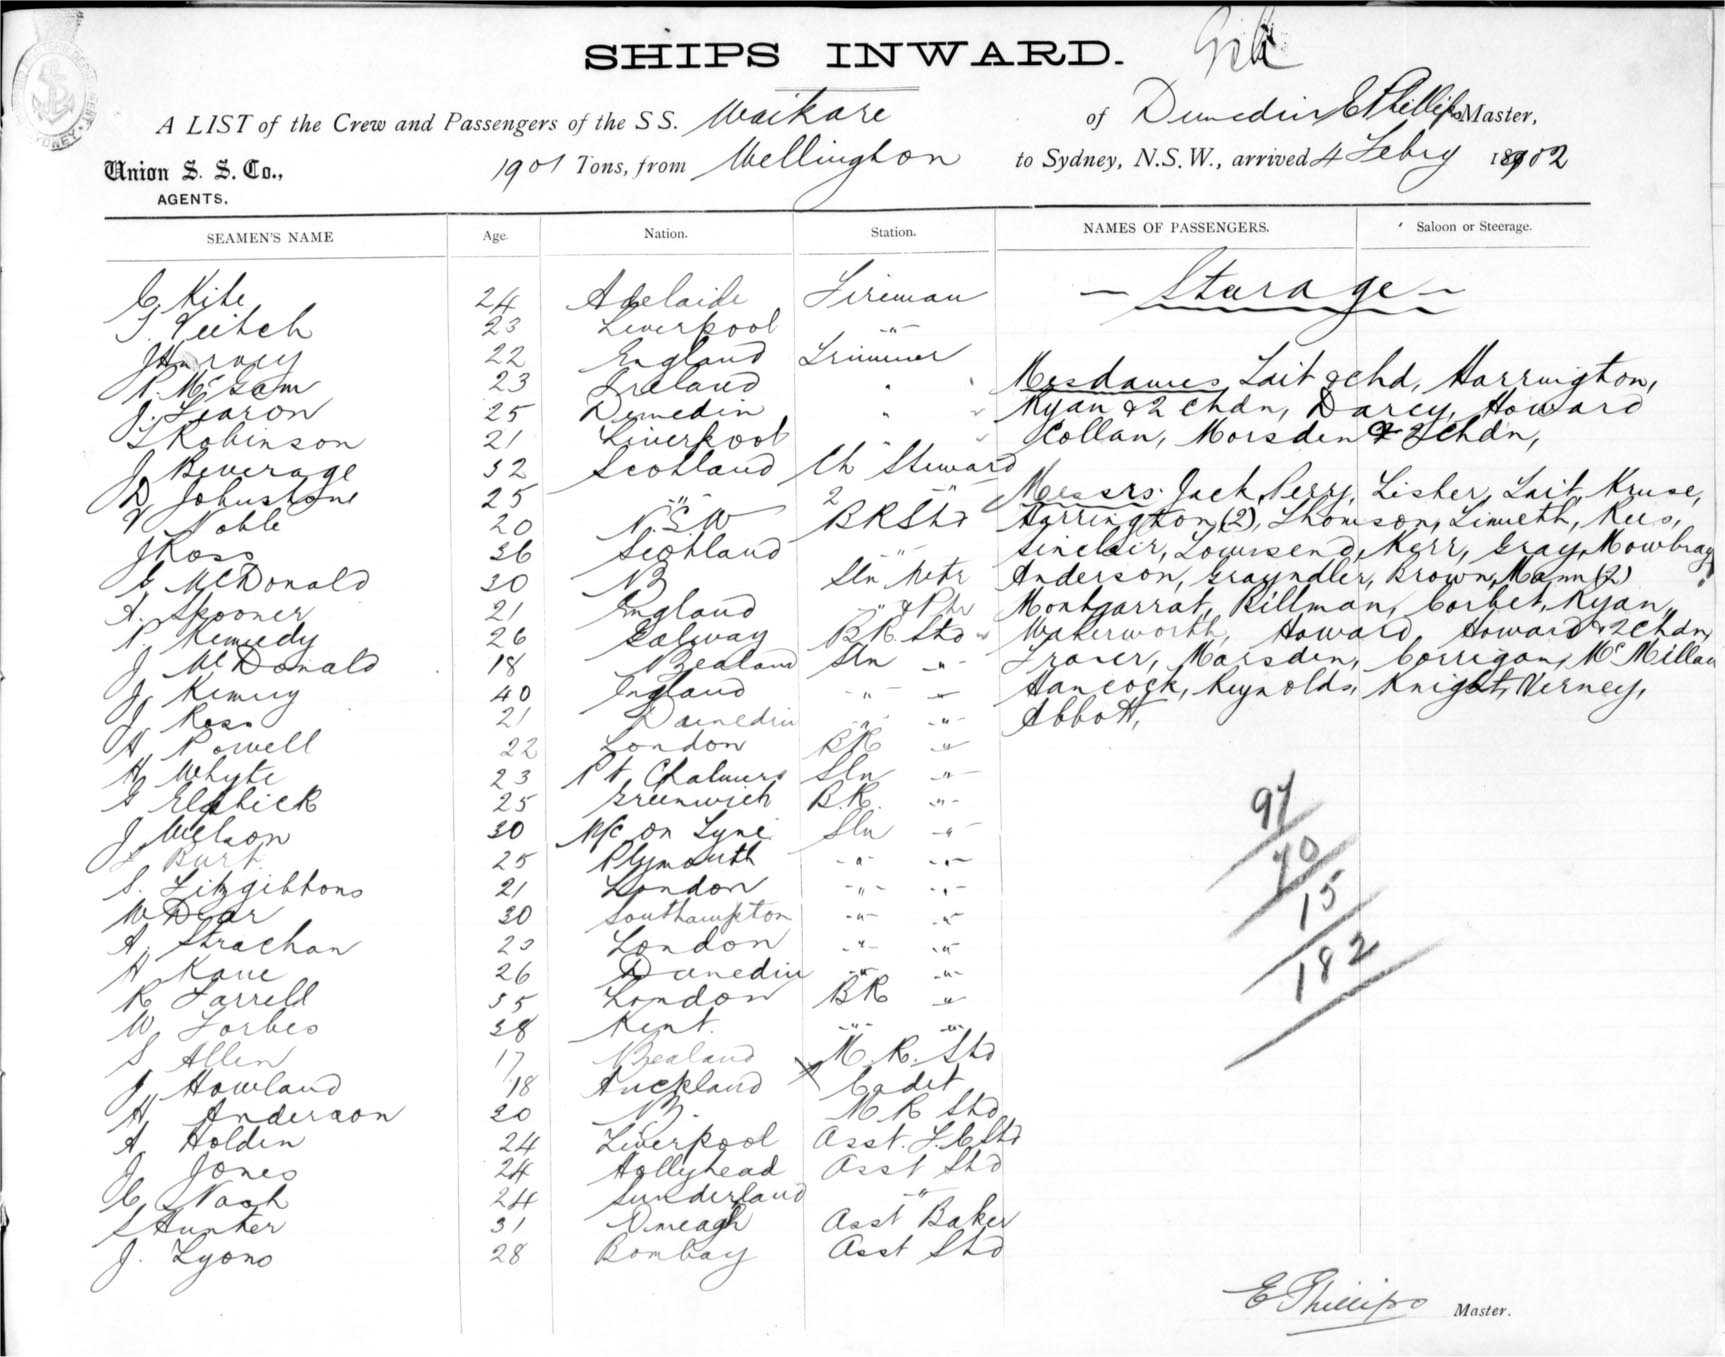 SHIPS INWARD.
A LIST of the Crew and Passengers of the S S. Waikare of Dunedin E Phillips Master,
Union S. S. Co., 1901 Tons, from Wellington to Sydney, N.S.W., arrived 4 Febry 1902
AGENTS.
SEAMEN'S NAME Age. Nation. Station. NAMES OF PASSENGERS. Saloon or Steerage.
C. Kite 24 Adelaide Fireman
— Sturage —
T. Veitch 23 Liverpool "
J Harvey 22 England Trimmer
P. McGem 23 Ireland "
Mesdames Lait & chd, Harrington,
J. Fearon 25 Dunedin "
Ryan & 2 Chdn, Darcy, Howard
T Robinson 21 Liverpool "
Collan, Morsden & 2 Chdn,
J Beverage 32 Scotland Ch Steward
D Johnstone 25 " 2 "
Messrs. Jack, Perry, Lisher, Lait, Kruse,
V Noble 20 N.S.W BRStd
Harrington (2), Thomson, Rees,
J Ross 36 Scotland "
Sinclair, Townsend, Kerr, Gray, Mowbray
G McDonald 30 NZ Sln
Anderson, Grayndler, Brown, Mann (2)
A. Spooner 21 England "
Montgarrat, Billman, Corbet, Ryan,
P. Kennedy 26 Galway BR Std
Waterworth, Howard, Howard & 2 Chdn
J McDonald 18 NZealand Sln "
Fraser, Marsden, Corrigan, McMillan
J, 40 England " "
Hancock, Reynolds, Knight, Verney,
J, Ross 21 Dunedin " "
Abbott,
H, Powell 22 London BR "
H, Whyte 23 Pt Chalmers Sln "
G 25 Greenwich B.R. "
J, Nelson 30 N/c on Tyne Sln "
Burt 25 Plymouth " "
S. Fitzgibbons 21 London " "
W Dear 30 Southampton " "
A, Strachan 23 London " "
H Kane 26 Dunedin " "
R Farrell 35 London BR "
W, Forbes 38 Kent. " "
S Allen 17 NZealand M. R. Std
J, Howland 18 Auckland Cadet
H, Anderson 20 NZ. M R Std
A, Holden 24 Liverpool Asst. Std
J, Jones 24 Hollyhead Asst Std
C, Nash 24 Sunderland "
S Hunter 31 Omeagh Asst Baker
J. Lyons 28 Bombay Asst Std
97
70
15
182
E Phillips Master.